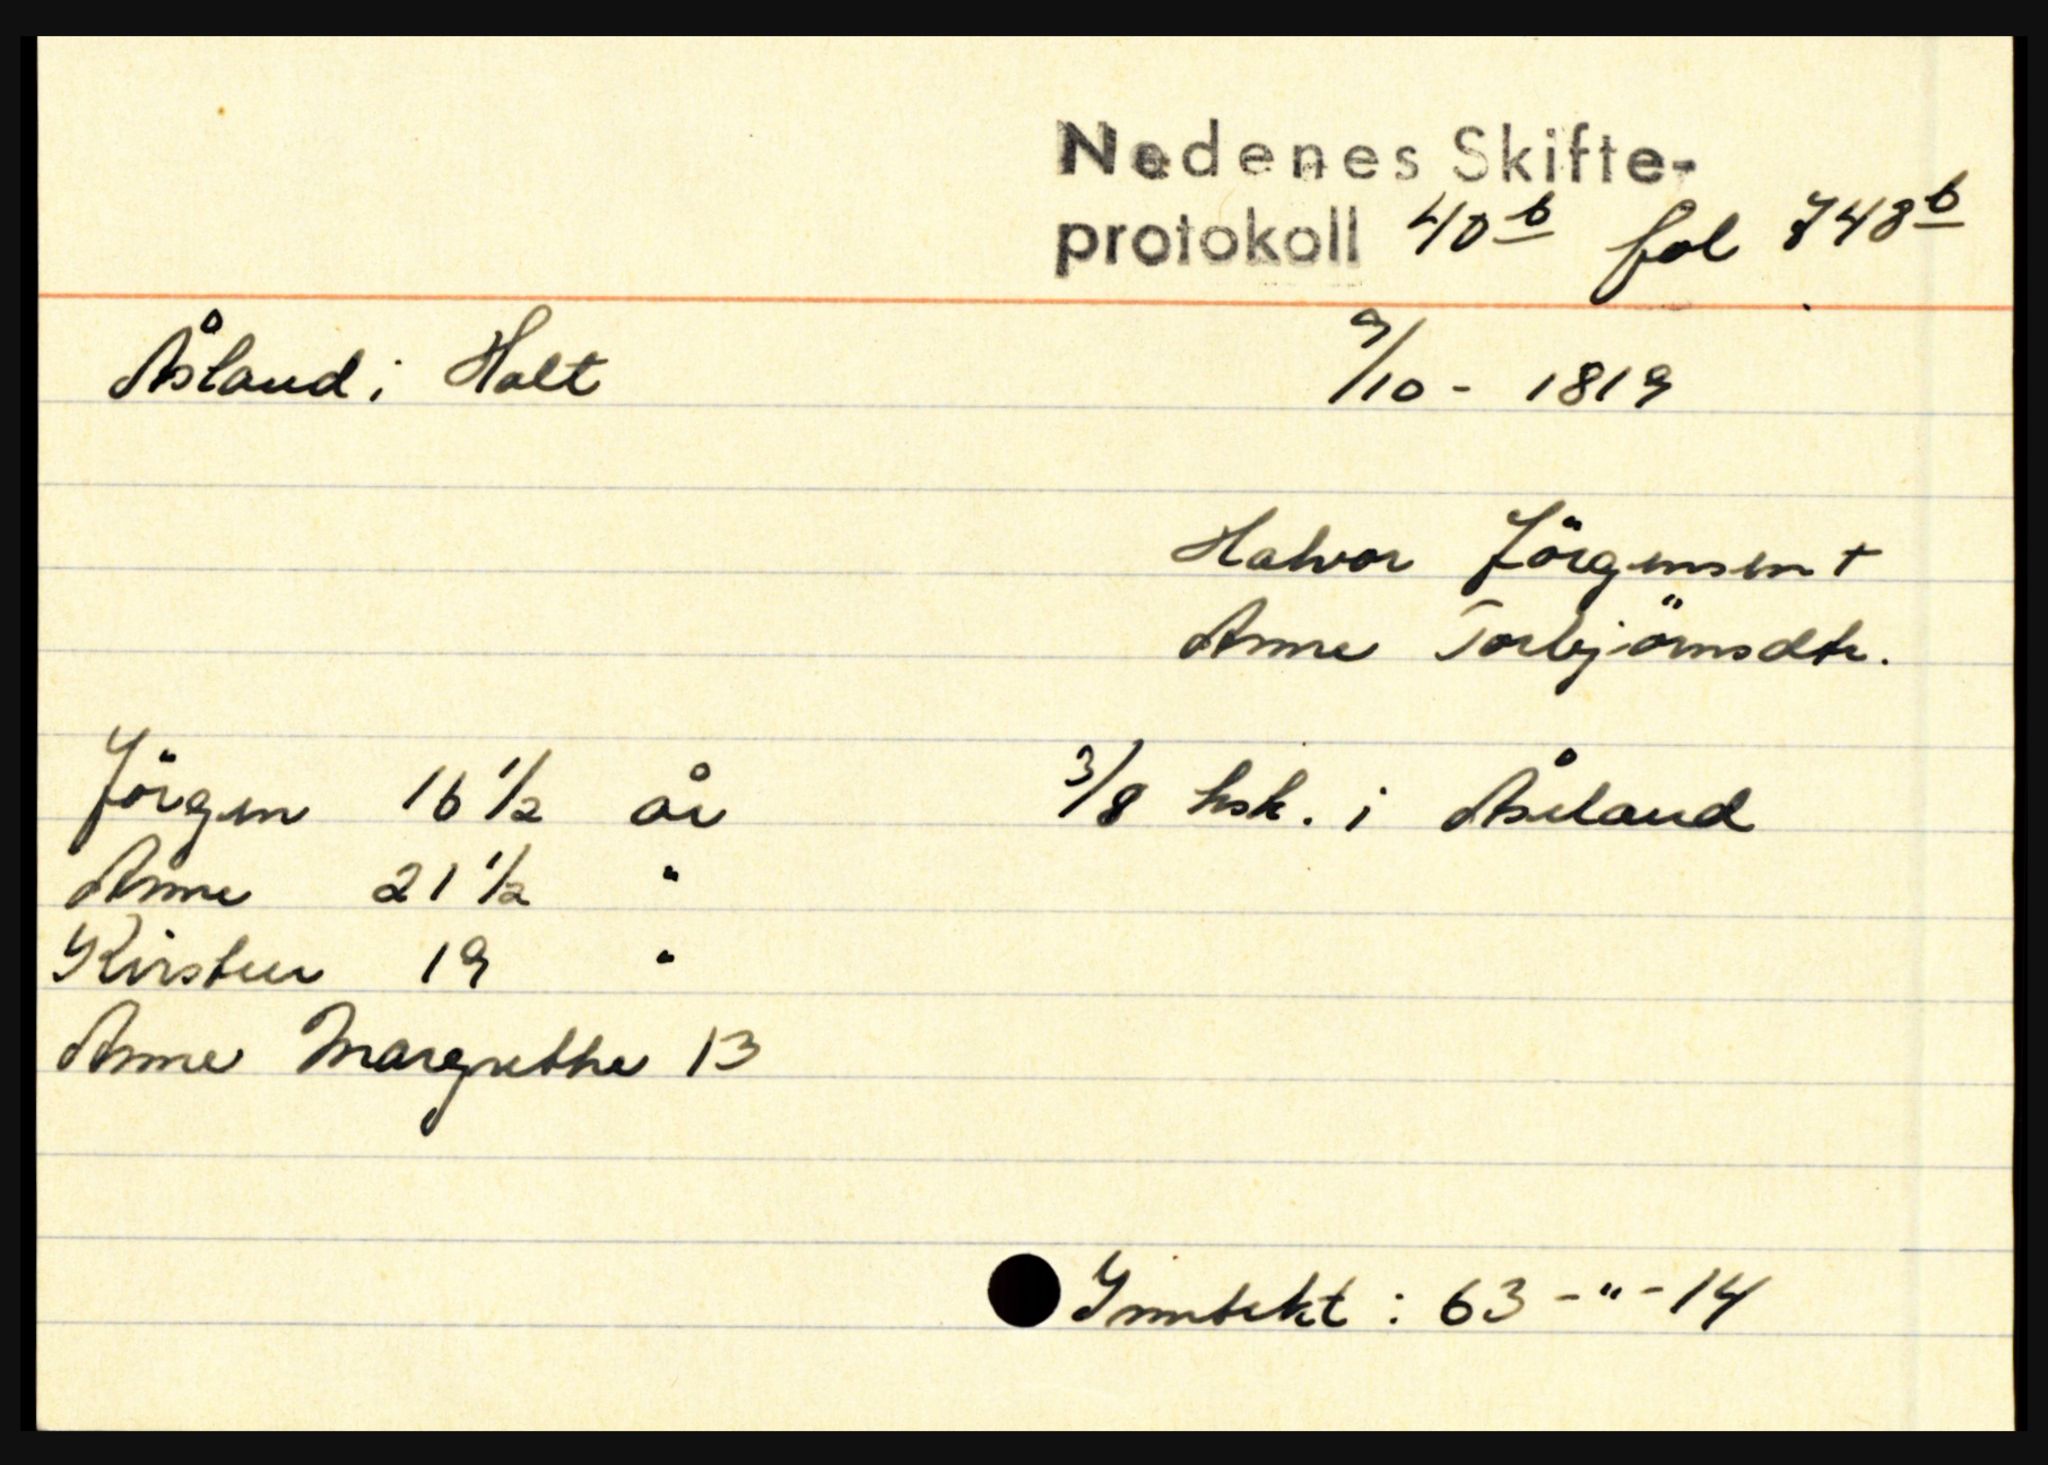 Nedenes Skifte-
protokoll 40b fol 748b
Åsland i Holt 9/10 - 1819
Halvor Jörgensen +
Anne Torbjörnsdtr.
Jörgen 16 1/2 år 3/8 hsk. i Åsland
Anne 21 1/2 "
Kirsten 19 "
Anne Margrethe 13
Inntekt : 63 - " - 14